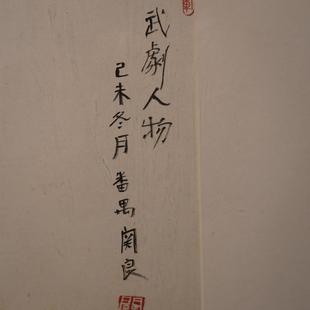 武劇人物
己未冬月番禺関良